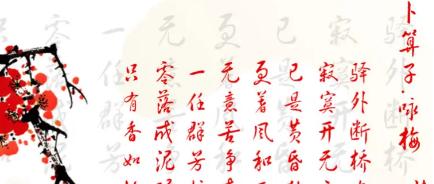 卜算子·咏梅
驿外断桥
寂寞开无
已是黄昏
更著风和
无意苦争
一任群芳
零落成泥
只有香如